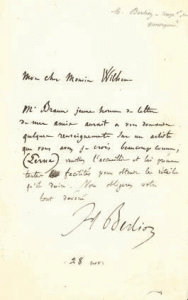 Mon cher Monsieur Wilhem
Mr Braune jeune homme de lettre
de mes amis aurait à vous demander
quelques renseignements sur un artiste
que vous avez je crois beaucoup connu,
veuillez l'accueillir et lui donner
toutes facilités pour obtenir les détails
qu'il désire. Vous obligerez votre
tout dévoué
H Berlioz
28 nov.